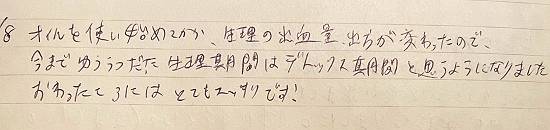 18 オイルを使い始めてから、生理の出血量、出方が変わったので、
今までゆううつだった生理期間はデトックス期間と思うようになりました
おわったころにはとてもスッキリです!